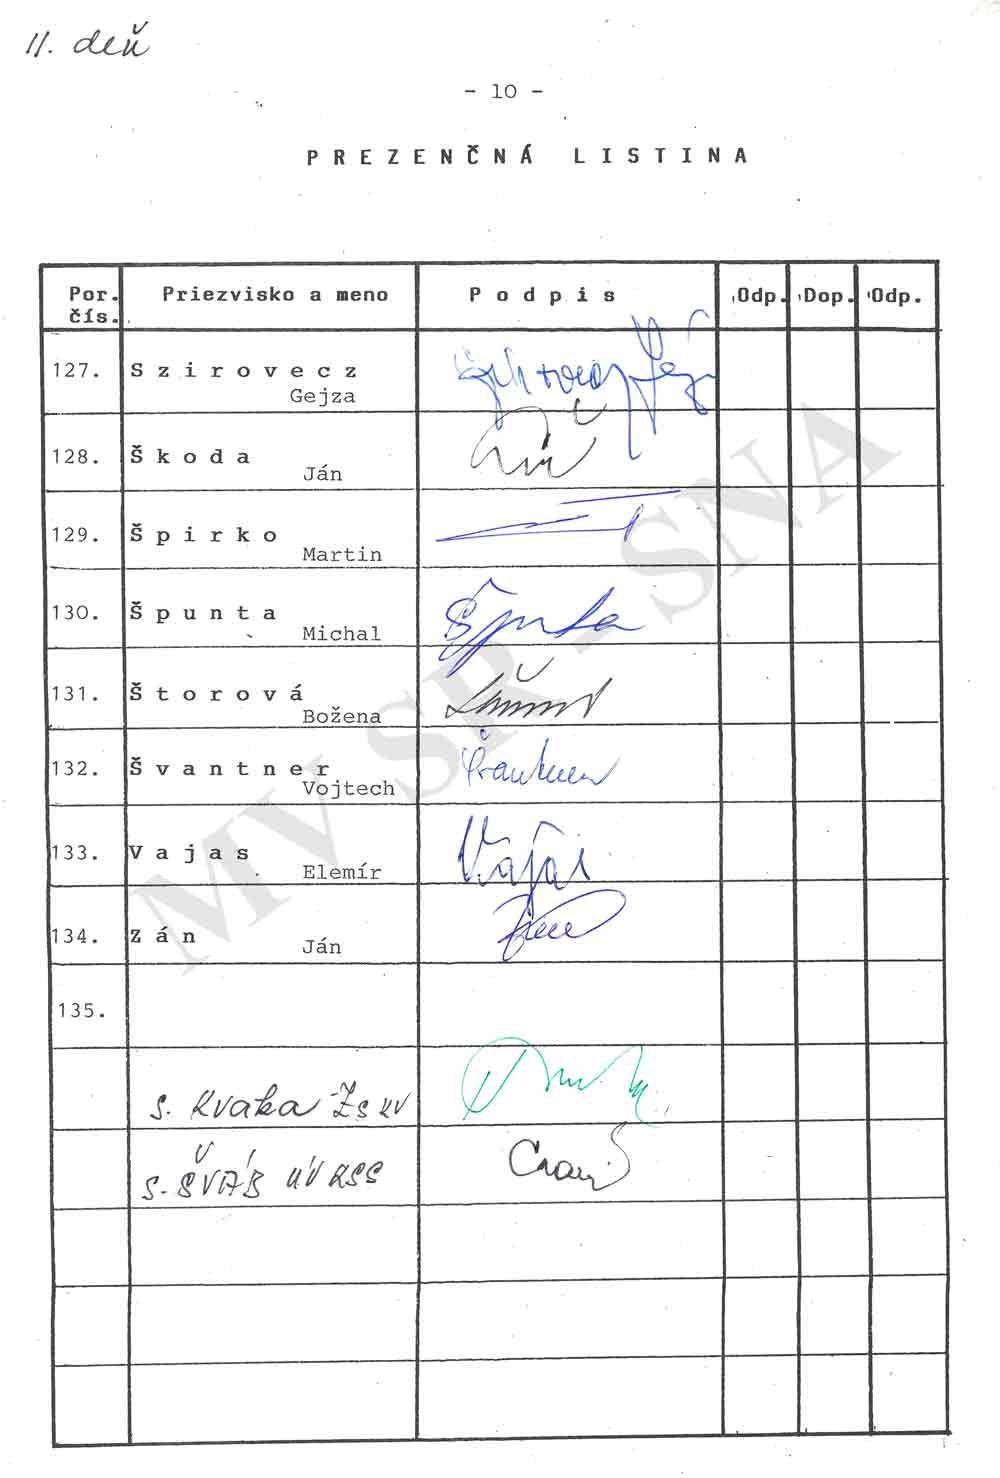 II. deň
- 10 -
PREZENČNÁ LISTINA
Por. čís. Priezvisko a meno Podpis Odp. Dop. Odp.
127. Szirovecz
Gejza
128. Škoda
Ján
129. Špirko
Martin
130. Špunta
Michal
Špunta
131. Štorová
Božena
132. Švantner
Vojtech
133. Vajas
Elemír
Vajas
134. Zán
Ján
135.
s. Kvaka ZsKV
s. ŠVÁB ÚV KSS
MV SR - SNA